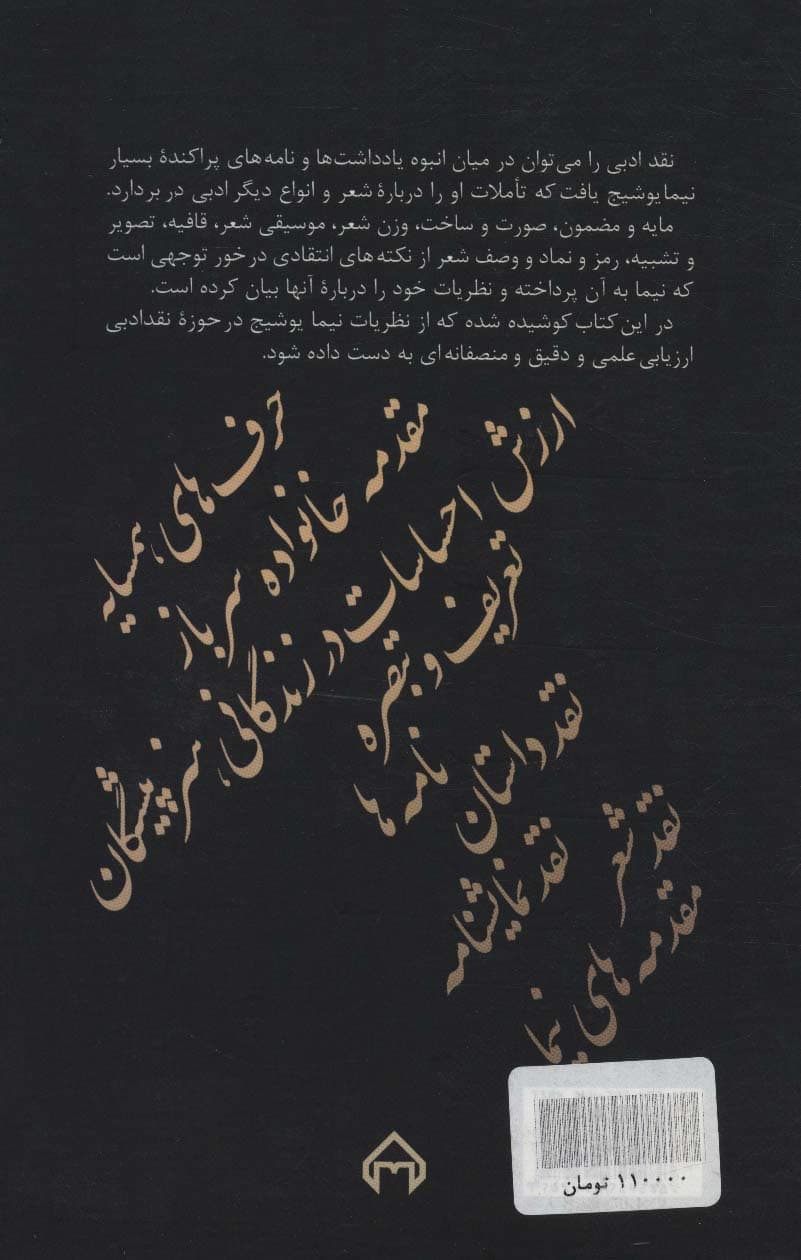 نقد ادبی را می‌توان در میان انبوه یادداشت‌ها و نامه‌های پراکندهٔ بسیار
نیما یوشیج یافت که تأملات او را دربارهٔ شعر و انواع دیگر ادبی در بر دارد.
مایه و مضمون، صورت و ساخت، وزن شعر، موسیقی شعر، قافیه، تصویر
و تشبیه، رمز و نماد و وصف شعر از نکته‌های انتقادی در خور توجهی است
که نیما به آن پرداخته و نظریات خود را دربارهٔ آنها بیان کرده است.
در این کتاب کوشیده شده که از نظریات نیما یوشیج در حوزهٔ نقد ادبی
ارزیابی علمی و دقیق و منصفانه‌ای به دست داده شود.
حرف‌های همسایه
مقدمه خانواده سرباز
ارزش احساسات در زندگانی هنرپیشگان
تعریف و تبصره
نامه‌ها
نقد داستان
نقد نمایشنامه
نقد شعر
مقدمه‌های نیما
۱۱۰۰۰۰ تومان